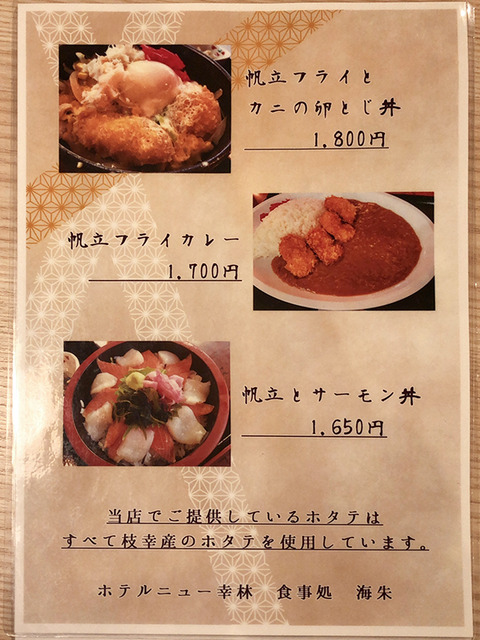 帆立フライと
カニの卵とじ丼
1,800円
帆立フライカレー
1,700円
帆立とサーモン丼
1,650円
当店でご提供しているホタテは
すべて枝幸産のホタテを使用しています。
ホテルニュー幸林 食事処 海朱